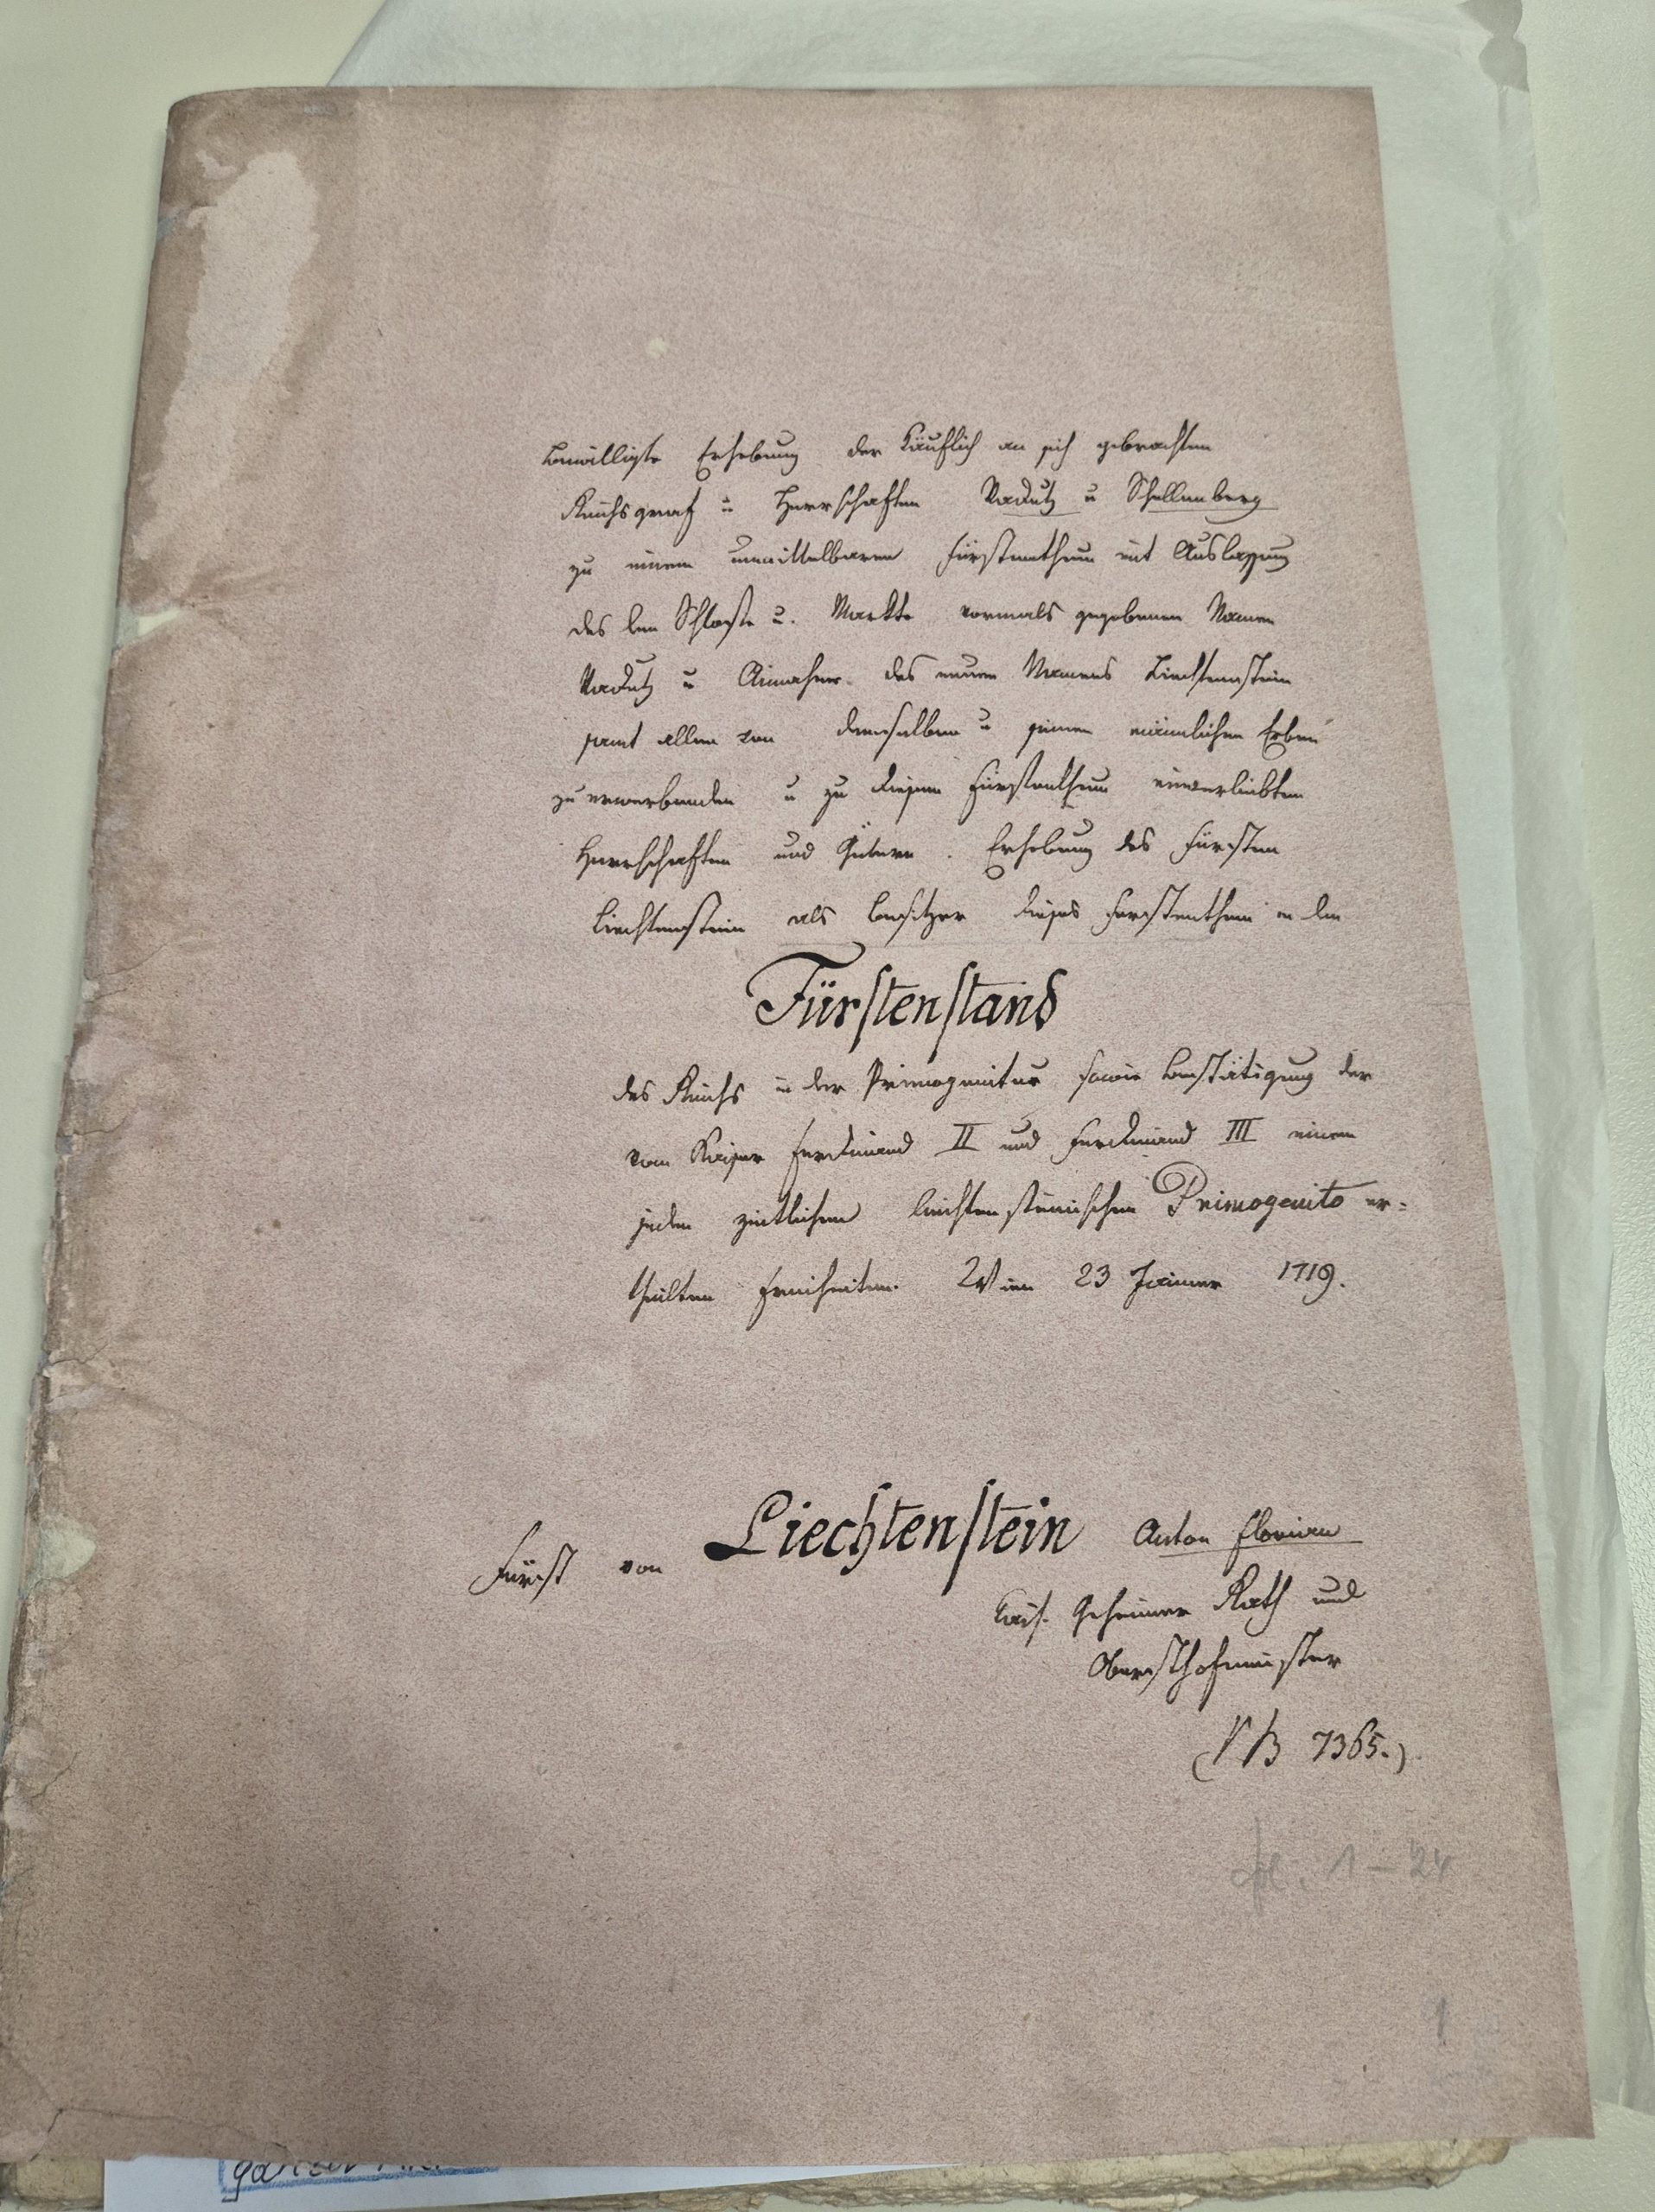 bewilligte Erhebung der käuflich an sich gebrachten
Reichsgraf u Herrschaften Vadutz u Schellenberg
zu einem unmittelbaren Fürstenthum mit Auslassung
des dem Schloße u. Markte vormals gegebenen Namen
Vadutz u Annahme des neuen Namens Liechtenstein
samt allen von demselben u seinen männlichen Erben
zu erwerbenden u zu diesem Fürstenthum einverleibten
Herrschaften und Gütern. Erhebung des Fürsten
Liechtenstein als Besitzer dieses Fürstenthum in den
Fürstenstand
des Reichs in der Primogenitur sowie Bestätigung der
von Kaiser Ferdinand II und Ferdinand III einem
jeden zeitlichen liechtensteinischen Primogenito er=
theilten Freiheiten. Wien 23 Jänner 1719.
Fürst von Liechtenstein Anton Florian
Kais. Geheimer Rath und
Obersthofmeister
7365.)
fol. 1 – 24
1